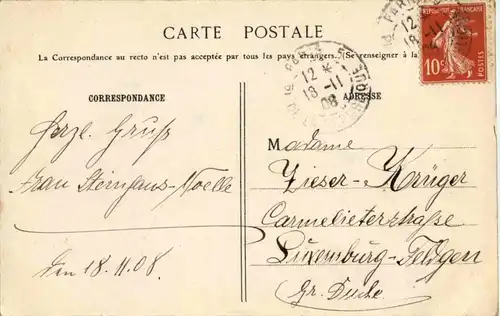 CARTE POSTALE
La Correspondance au recto n'est pas acceptée par tous les pays étrangers. (Se renseigner à la
RÉPUBLIQUE FRANÇAISE
10c
12
18 -11
12 *
18 -11
08
CORRESPONDANCE
ADRESSE
Herzl. Gruß
Frau
Den 18.11.08.
Madame
Zieser-Krüger
Carmeliterstraße
Luxemburg-
Gr. Duché